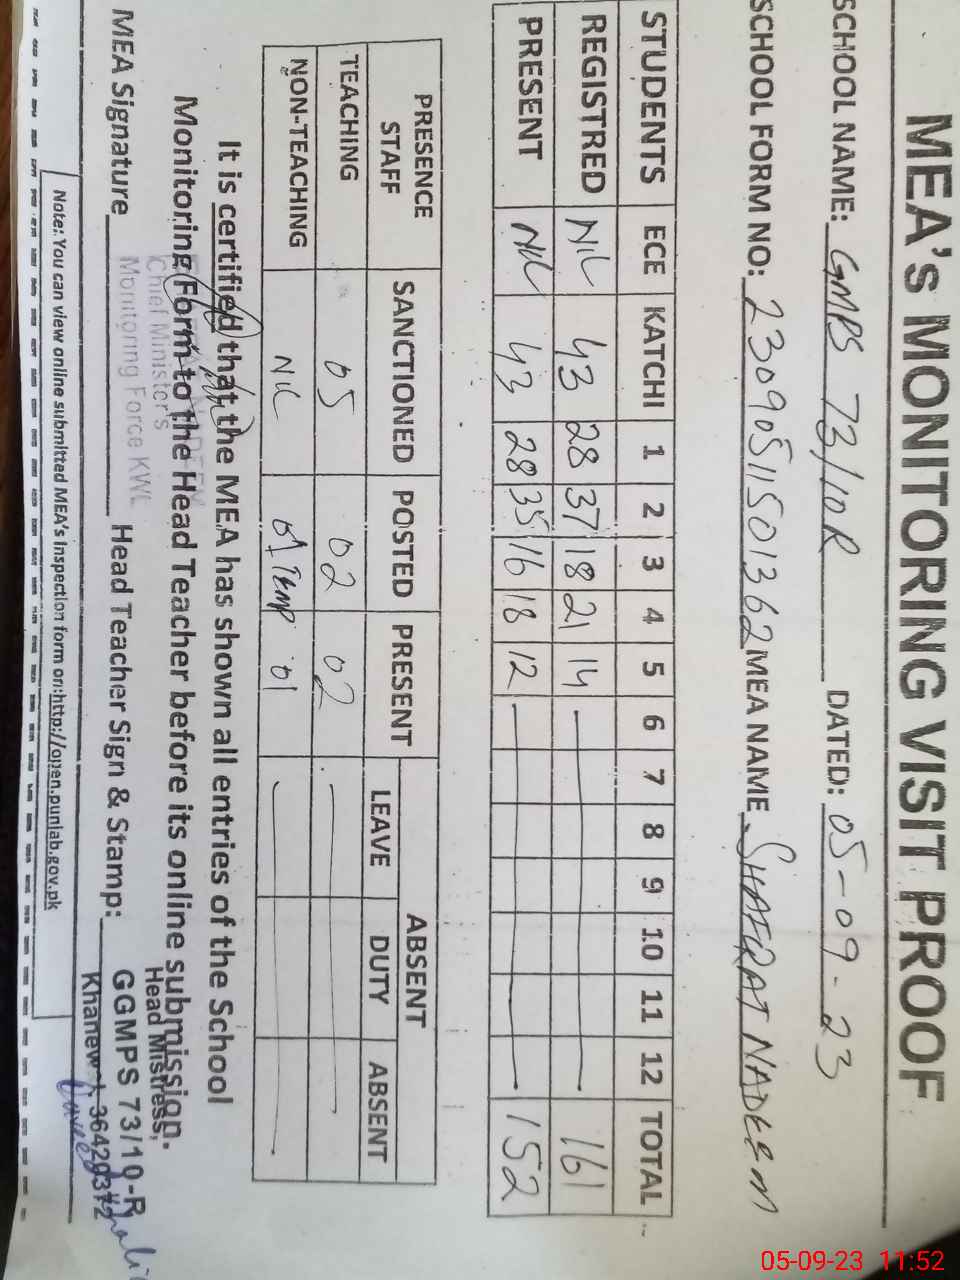 MEA's MONITORING VISIT PROOF
SCHOOL NAME: GMPS 73/10R DATED: 05-09-23
SCHOOL FORM NO: 23090511501362 MEA NAME SHAFQAT NADEEM
STUDENTS ECE KATCHI 1 2 3 4 5 6 7 8 9 10 11 12 TOTAL
REGISTRED NIL 43 28 37 18 21 14 161
PRESENT NIL 43 28 35 16 18 12 152
PRESENCE STAFF SANCTIONED POSTED PRESENT ABSENT
LEAVE DUTY ABSENT
TEACHING 05 02 02
NON-TEACHING NIL 01 TEMP 01
It is certified that the MEA has shown all entries of the School
Monitoring Form to the Head Teacher before its online submission.
NADEEM
Chief Minister's
Monitoring Force KWL
MEA Signature Head Teacher Sign & Stamp:
Head Mistress,
GGMPS 73/10-R
Khanewal
Note: You can view online submitted MEA's Inspection form on:http://open.punlab.gov.pk
05-09-23 11:52